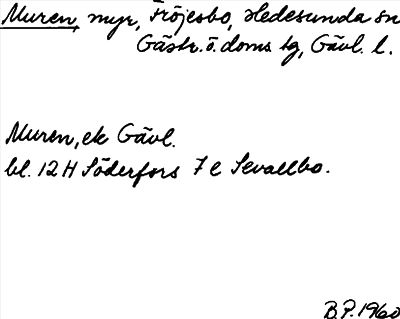 Muren, myr, Fröjesbo, Hedesunda sn
Gästr. ö. doms tg, Gävl. l.
Muren, ek Gävl.
bl. 12 H Söderfors 7 e Sevallbo.
B.P. 1960